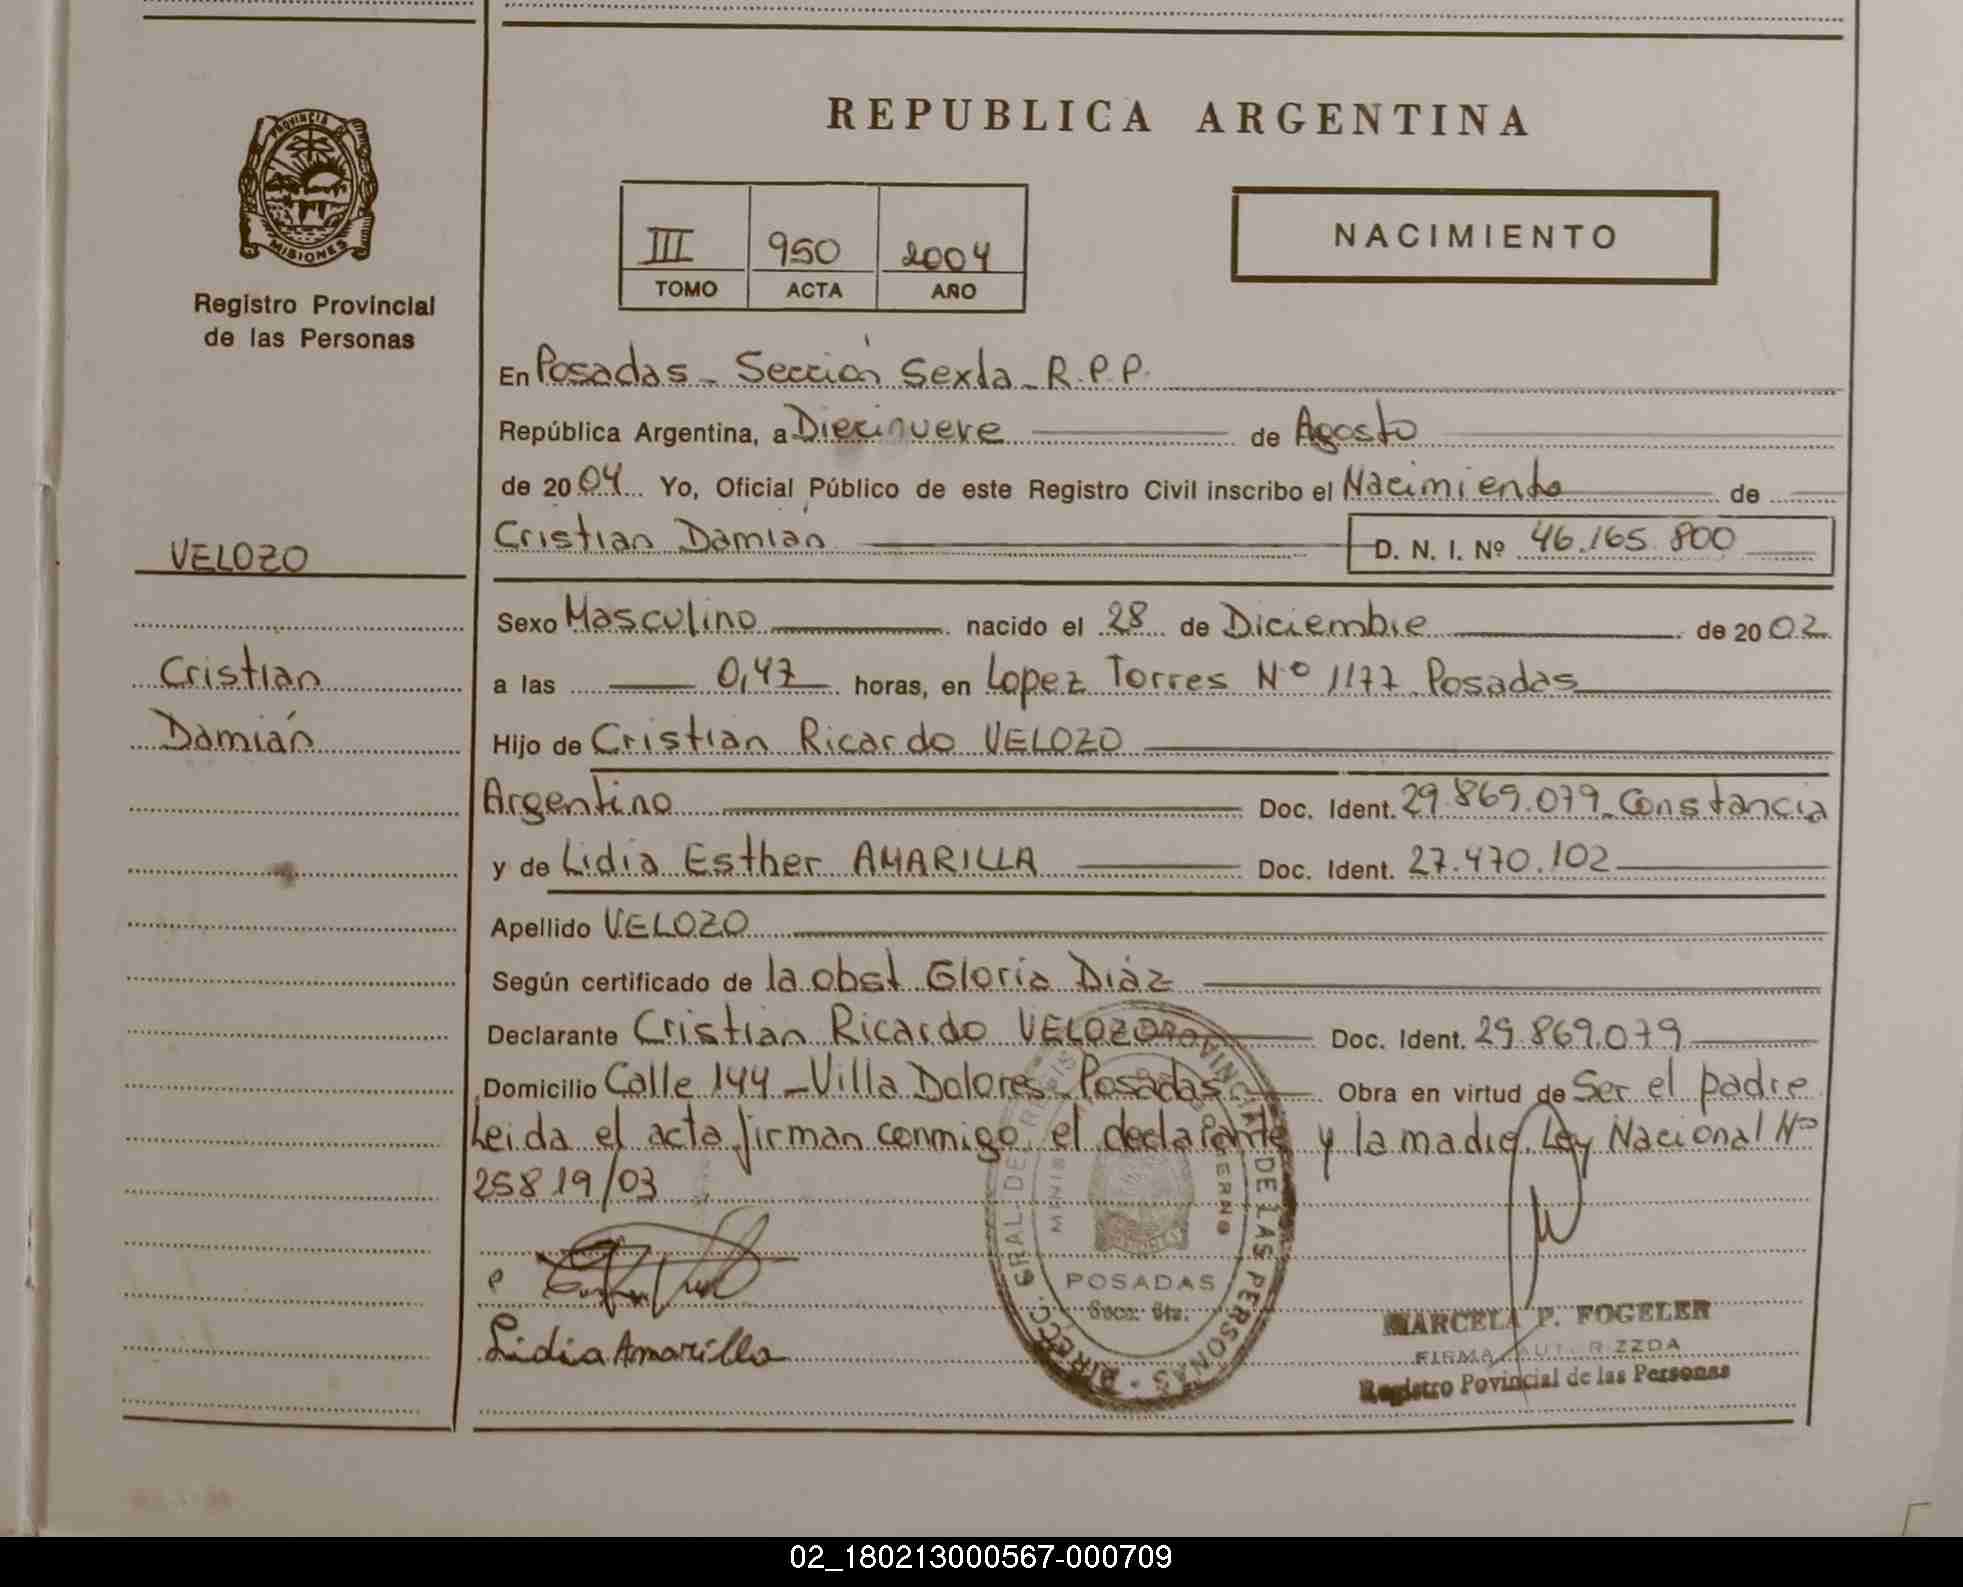 REPUBLICA ARGENTINA
PROVINCIA DE
MISIONES
Registro Provincial
de las Personas
III 950 2004
TOMO ACTA AÑO
NACIMIENTO
VELOZO
Cristian
Damián
En Posadas - Sección Sexta - R.P.P.
República Argentina, a Diecinueve de Agosto
de 2004 Yo, Oficial Público de este Registro Civil inscribo el Nacimiento de
Cristian Damián D. N. I. Nº 46.165.800
Sexo Masculino nacido el 28 de Diciembre de 2002
a las 0,47 horas, en Lopez Torres Nº 1177 Posadas
Hijo de Cristian Ricardo VELOZO
Argentino Doc. Ident. 29.869.079 - Constancia
y de Lidia Esther AMARILLA Doc. Ident. 27.470.102
Apellido VELOZO
Según certificado de la obst Gloria Diaz
Declarante Cristian Ricardo VELOZO Doc. Ident. 29.869.079
Domicilio Calle 144 - Villa Dolores - Posadas Obra en virtud de Ser el padre
Leida el acta firman conmigo el declarante y la madre. Ley Nacional Nº
25819/03
Lidia Amarilla
DIRECC. GRAL. DE PROVINCIAL DE LAS PERSONAS
POSADAS
Secc. 6ta.
MARCELA P. FOGELER
FIRMA AUTORIZZDA
Registro Povincial de las Personas
02_180213000567-000709